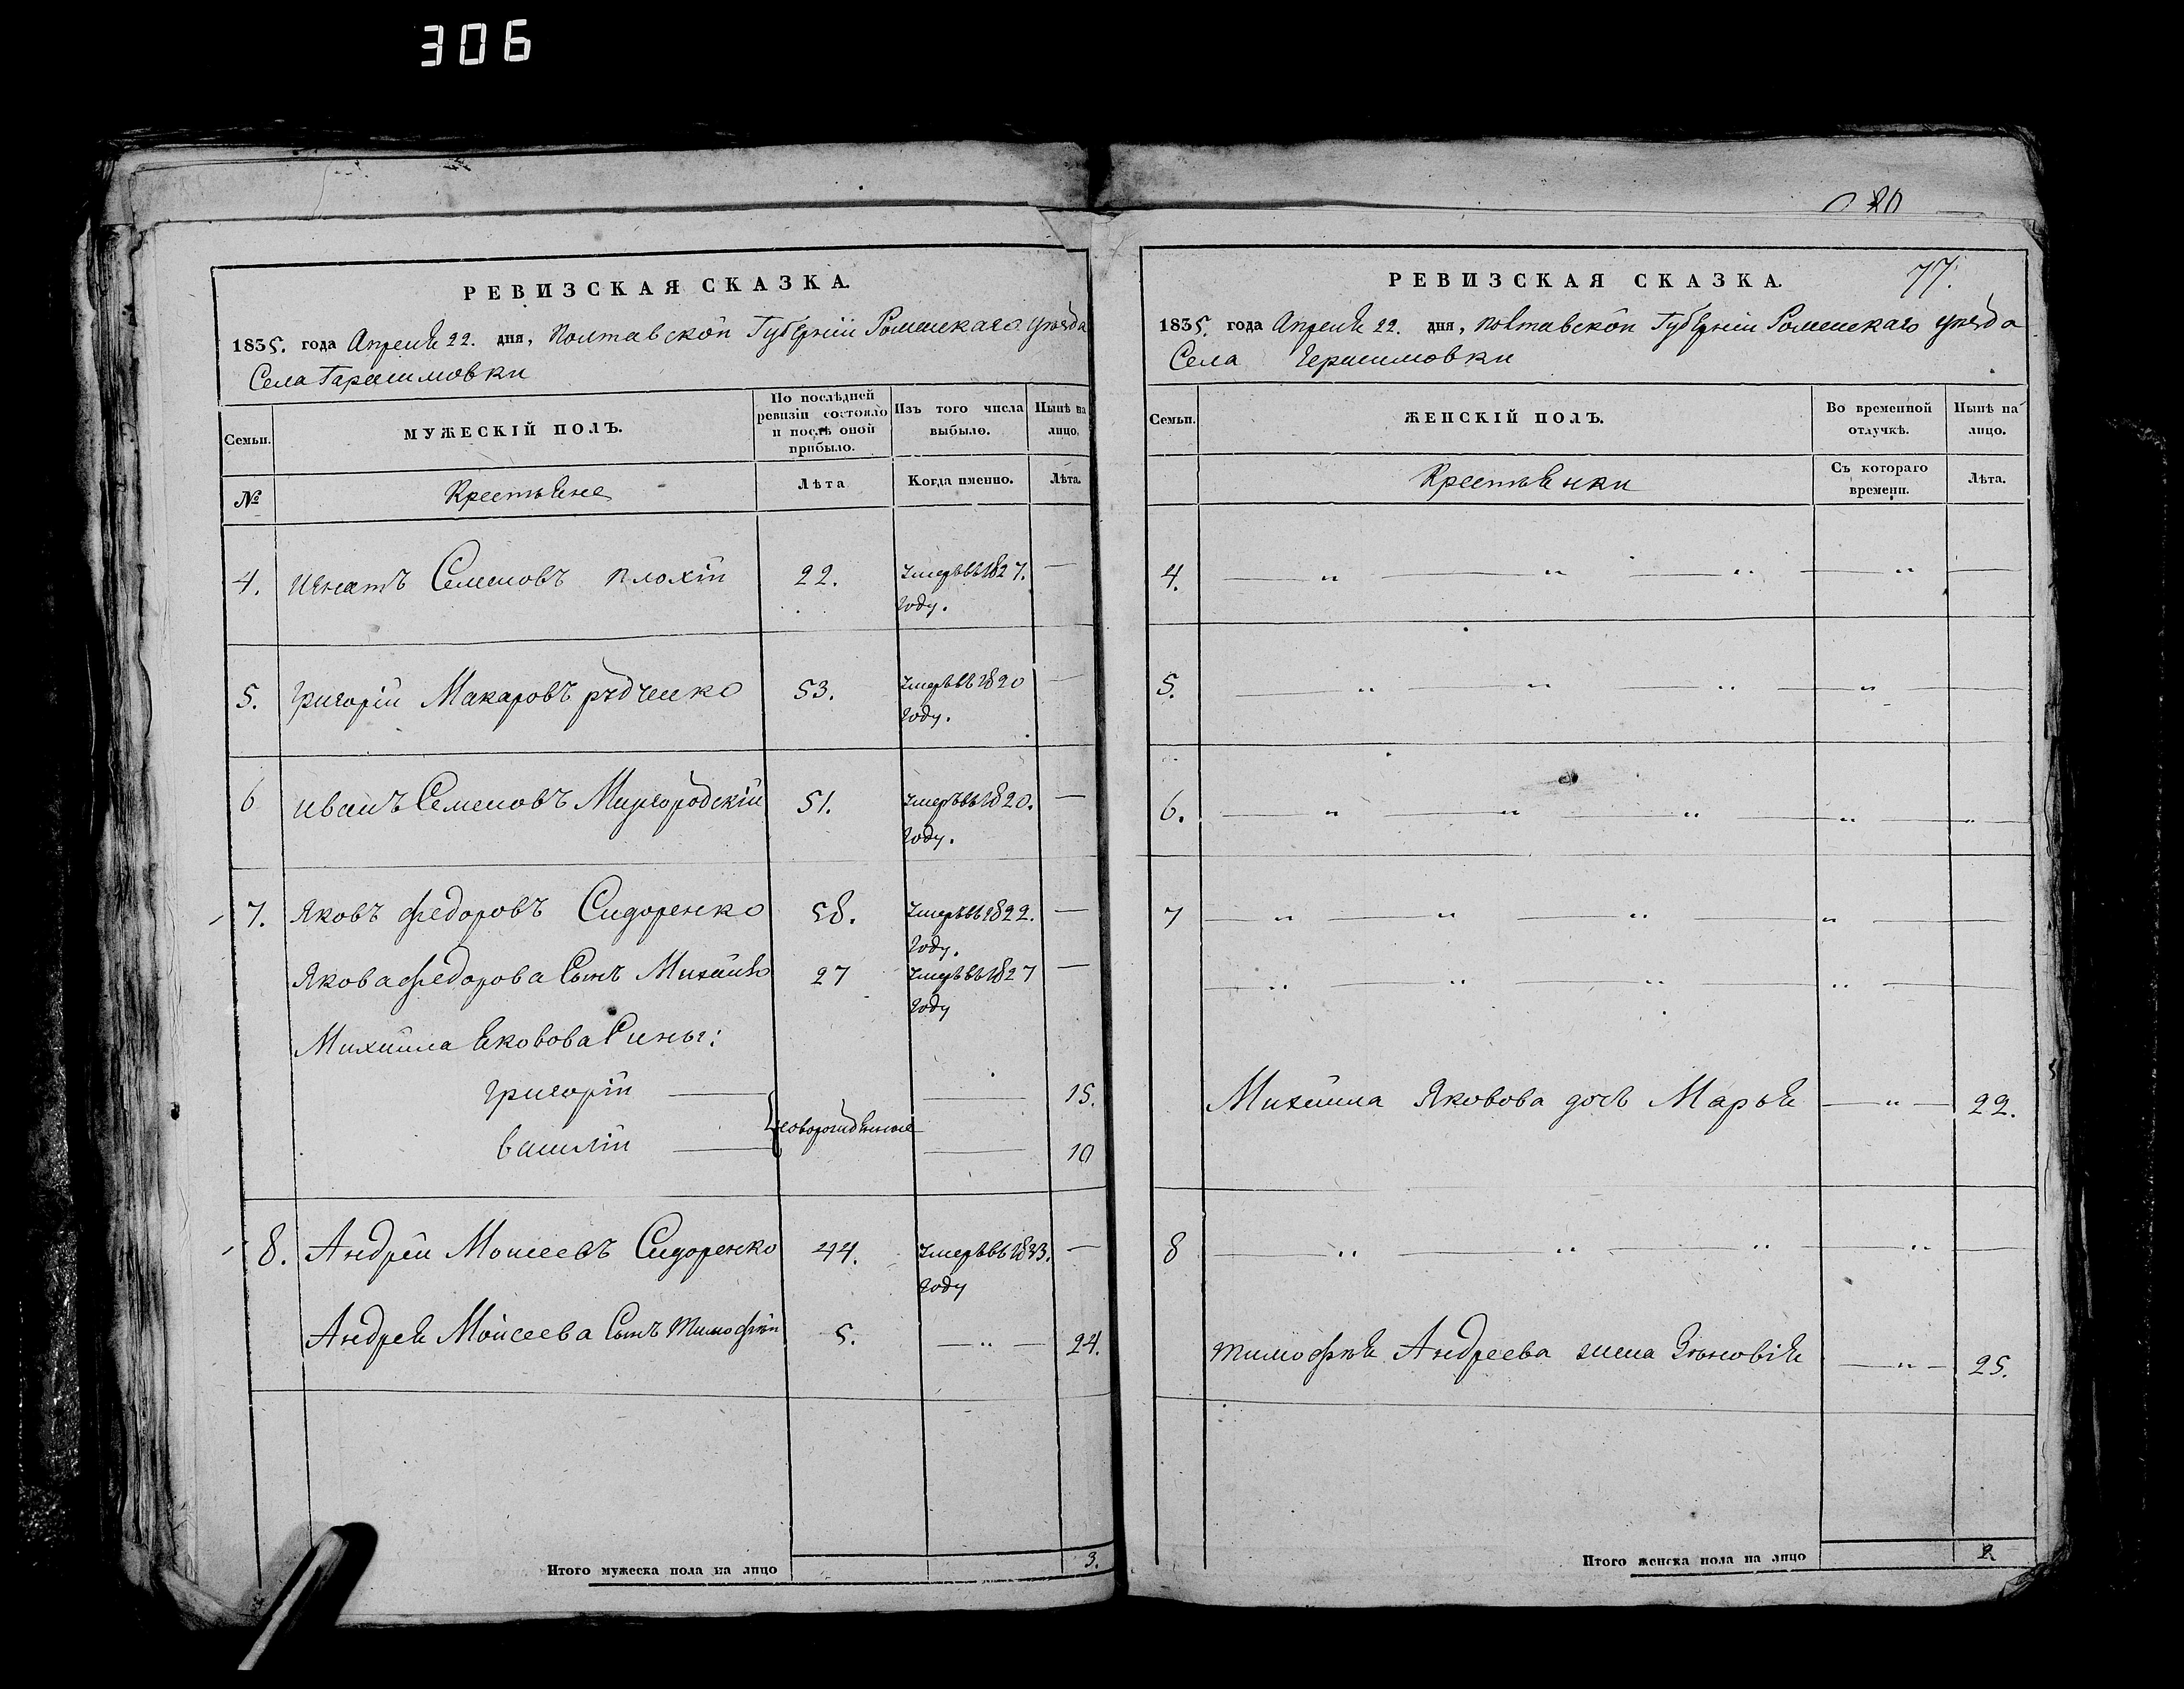 306
РЕВИЗСКАЯ СКАЗКА.
1835. года Апреля 22. дня, Полтавской Губернии Роменскаго уезда
Села Гарасимовки
Семьи.
МУЖЕСКІЙ ПОЛЪ.
По послѣдней ревизіи состояло и послѣ оной прибыло.
Изъ того числа выбыло.
Нынѣ на лицо.
№
Крестьяне
Лѣта
Когда именно.
Лѣта.
4. Игнатъ Семеновъ Плохій 22. Умеръ въ 1827. —
году.
5. Григорій Макаровъ Рѣдченко 53. Умеръ въ 1820 —
году.
6 Иванъ Семеновъ Миргородскій 51. Умеръ въ 1820. —
году.
7. Яковъ Федоровъ Сидоренко 58. Умеръ въ 1822. —
году.
Якова Федорова Сынъ Михайло 27 Умеръ въ 1827 —
году
Михайла Яковова Сины:
Григорій — — 15.
новорожденные
Василій — — 10
8. Андрей Моисеевъ Сидоренко 44. Умеръ въ 1833. —
году
Андрея Моисеева Сынъ Тимофѣй 5. — „ — 24.
Итого мужеска пола на лицо 3.
20
77.
РЕВИЗСКАЯ СКАЗКА.
1835. года Апреля 22. дня, Полтавской Губерніи Роменскаго уезда
Села Герасимовки
Семьи.
ЖЕНСКІЙ ПОЛЪ.
Во временной отлучкѣ.
Нынѣ на лицо.
Крестьянки
Съ котораго времени.
Лѣта.
4. — „ — „ — „ — „ —
5. — „ — „ — „ — „ —
6. — „ — „ — „ — „ — „
7 — „ — „ — „ — „ —
— „ — „ — „ — „ —
Михайла Яковова дочь Марья — „ — 22.
8 — „ — „ — „ — „ —
Тимофѣя Андреева жена Зѣновія — „ — 25.
Итого женска пола на лицо 2